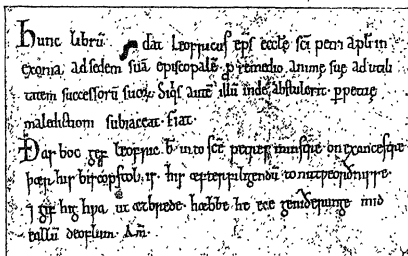 Hunc librū dat leofricus ep̄s eccłe sc̄i petri apłi in
exonia, ad sedem suā episcopalē ꝓ remedio animę suę ad utili
tatem successorū suoꝝ. Siq̇s autē illū inde abstulerit. ꝑpetuę
maledictioni subiaceat. Fiat.
Ðas boc gef leofric .b. into sc̄e petres minstre on exancestre
þær his bisceopstol is. his æfterfiligendū to nitweorðnisse.
⁊ gif hig hƿa ut ætbrede. hæbbe he ece geniðerunge mid
eallū deoflum. Am̄.